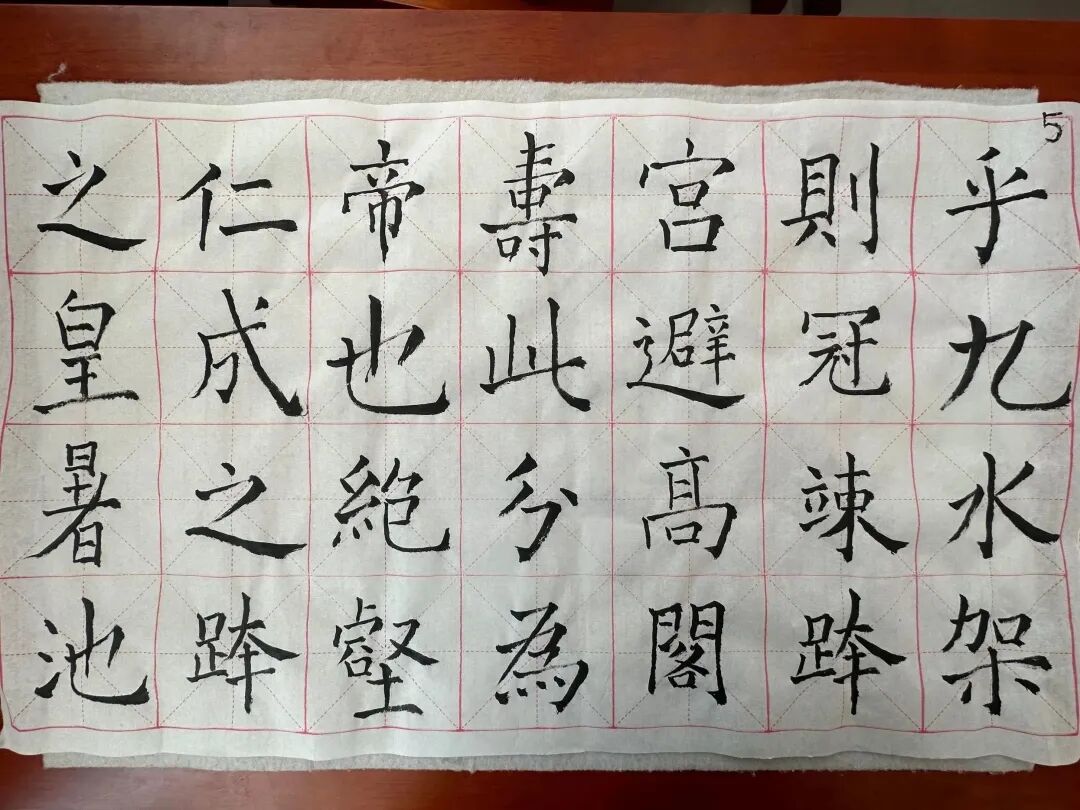 5
乎九水架
則冠竦跨
宫避髙閣
壽此分為
帝也絶壑
仁成之跨
之皇暑池